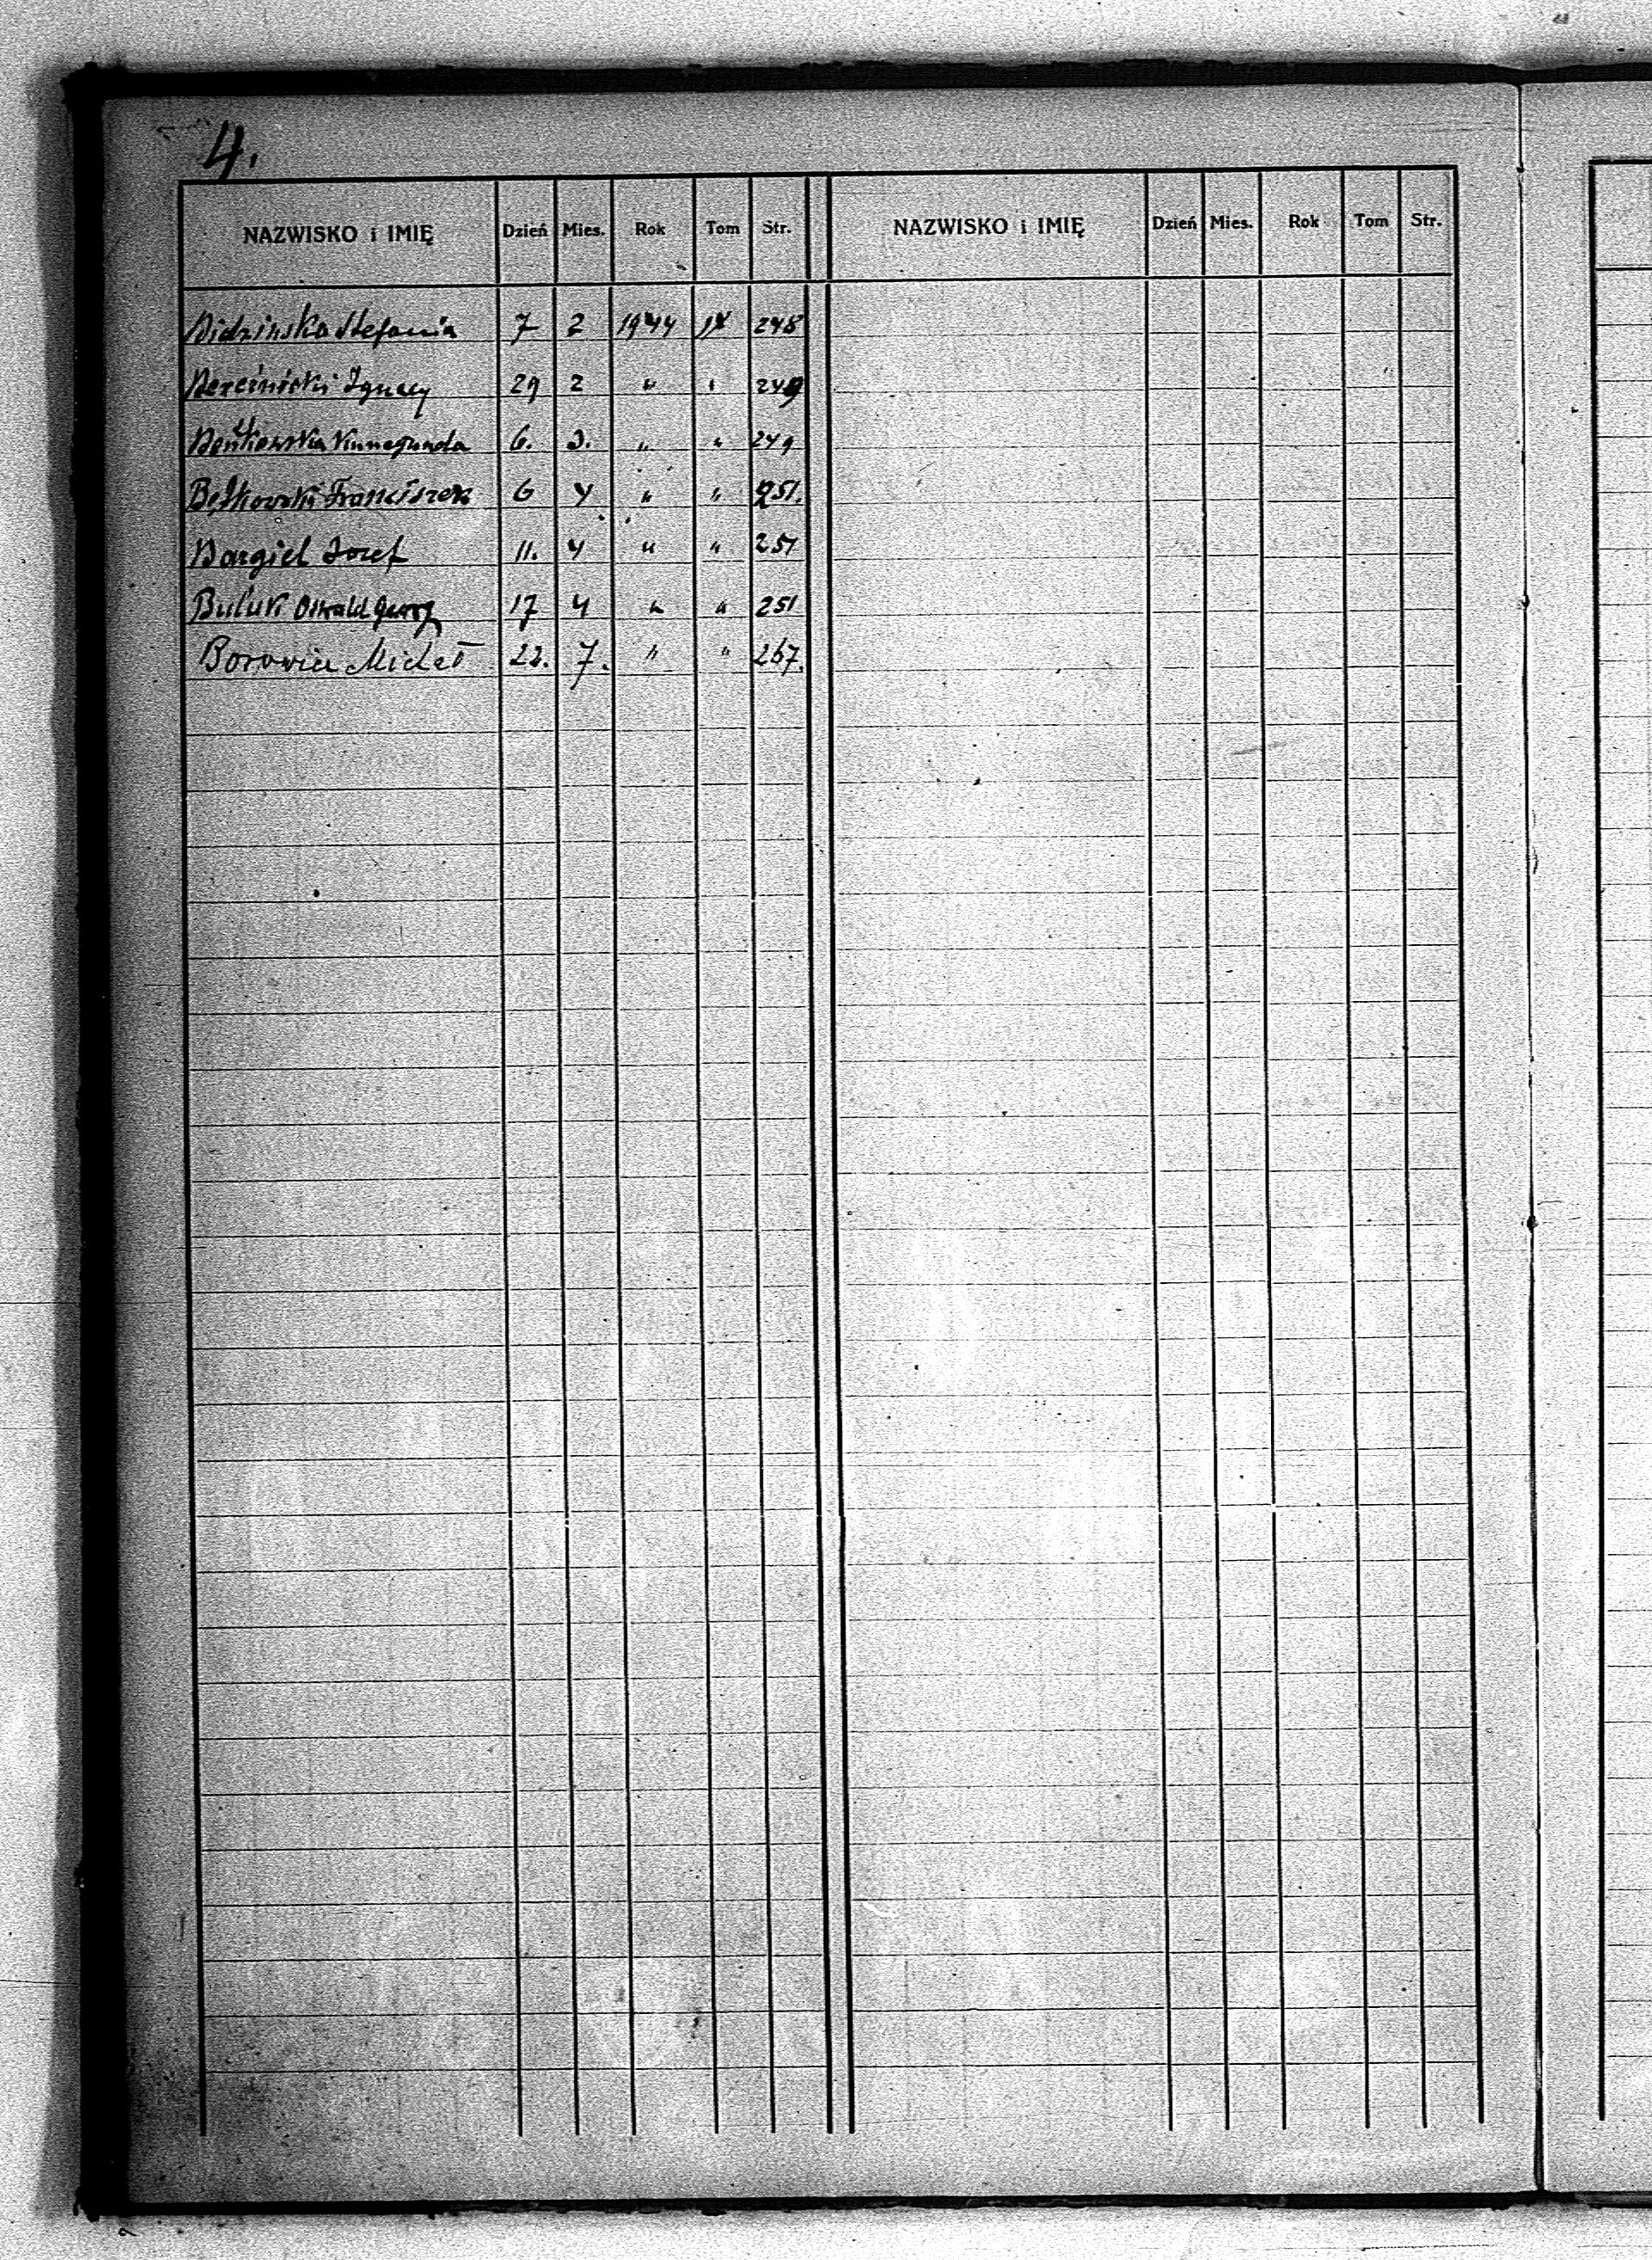 4.
NAZWISKO i IMIĘ Dzień Mies. Rok Tom Str. NAZWISKO i IMIĘ Dzień Mies. Rok Tom Str.
Bidzinska Stefania 7 2 1944 248
Ignacy 29 2 " " 249
Kunegunda 6. 3. " " 249
Bętkowski Franciszek 6 4 " " 251.
Bargiel Jozef 11. 4 " " 251
Oswald Georg 17 4 " " 251
Borowiec Michał 22. 7. " " 267.